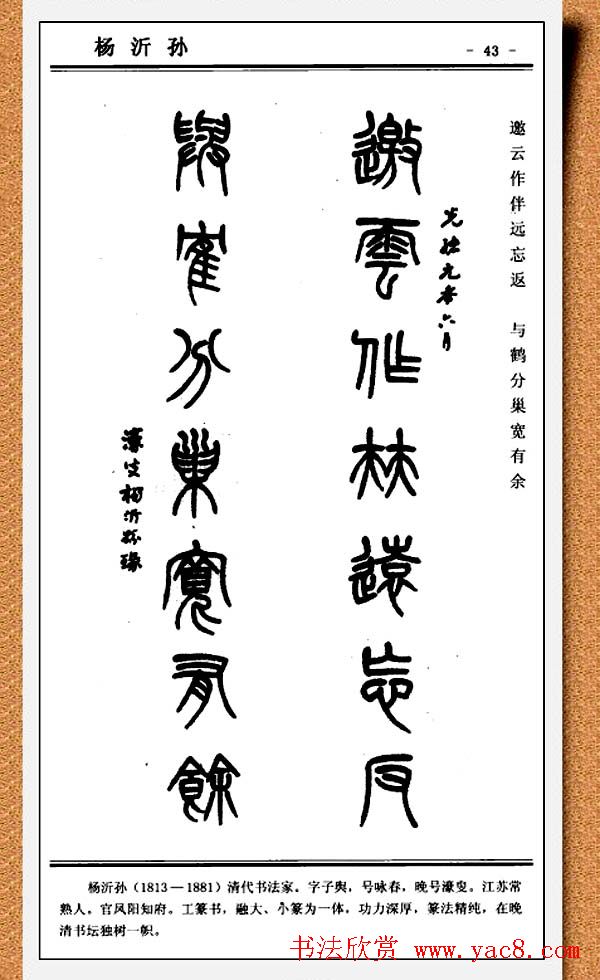 杨沂孙
- 43 -
邀云作伴远忘返 与鹤分巢宽有余
光緒年六月
邀雲作㚘遠忘反
與隺分巢寬有餘
濠叟楊沂孫
杨沂孙（1813—1881）清代书法家。字子舆，号咏春，晚号濠叟。江苏常
熟人，官凤阳知府。工篆书，融大、小篆为一体，功力深厚，篆法精纯，在晚
清书坛独树一帜。
书法欣赏 www.yac8.com